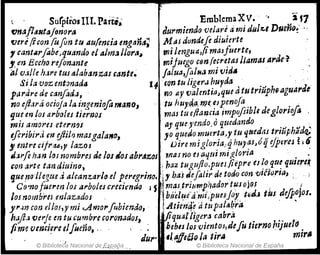 Suspiros III. Parte,
vnaflautasonora
verè si con su son tu ausencia engaña;
y cantar sabe, quando el alma llora,
y en Eccho resonante
al valle hare tus alabanzas cante.
Si la voz entonada
parare de cansada,
no estarà ociosa la ingeniosa mano,
que en los arboles tiernos
mis amores eternos
escribirà en estilo mas galano,
y entre cifras, y lazos
darse han los nombres de los dos abrazos
con arte tan diuino,
que no llegue à alcanzarlo el peregrino.
Como fueren los arboles creciendo
los nombres enlazados
yran con ellos, y mi Amor subiendo,
hasta verse en tu cumbre coronados,
si me venciere el sueño,
dur-
Emblema XV. 217
durmiendo velarè à mi dulze Dueño.
Mas donde se diuierte
mi lengua, si mas fuerte,
mi fuego con secretas llamas arde?
salua, salua mi vida
con tu ligera huyda
no ay valentia, que à tu triũpho aguarde
tu huyda me es penosa
mas tu essencia impossible de gloriosa
ay que yendo, ò quedando
yo quedo muerta, y tu quedas triũphãdo:
Dire mi gloria, q̃ huyas, ò q̃ esperes
mas no es aqui mi gloria
haz tu gusto, pues siẽpre es lo que quieres
y has de salir de todo con victoria,
mas triumphador tus ojos
buelue à mi, pues soy toda tus despojos.
Atiende à tu palabra
si qual ligera cabra
bebes los vientos, de su tierno hijuelo
el affecto la tira
mira
© Biblioteca Nacional de España
© Biblioteca Nacional de España